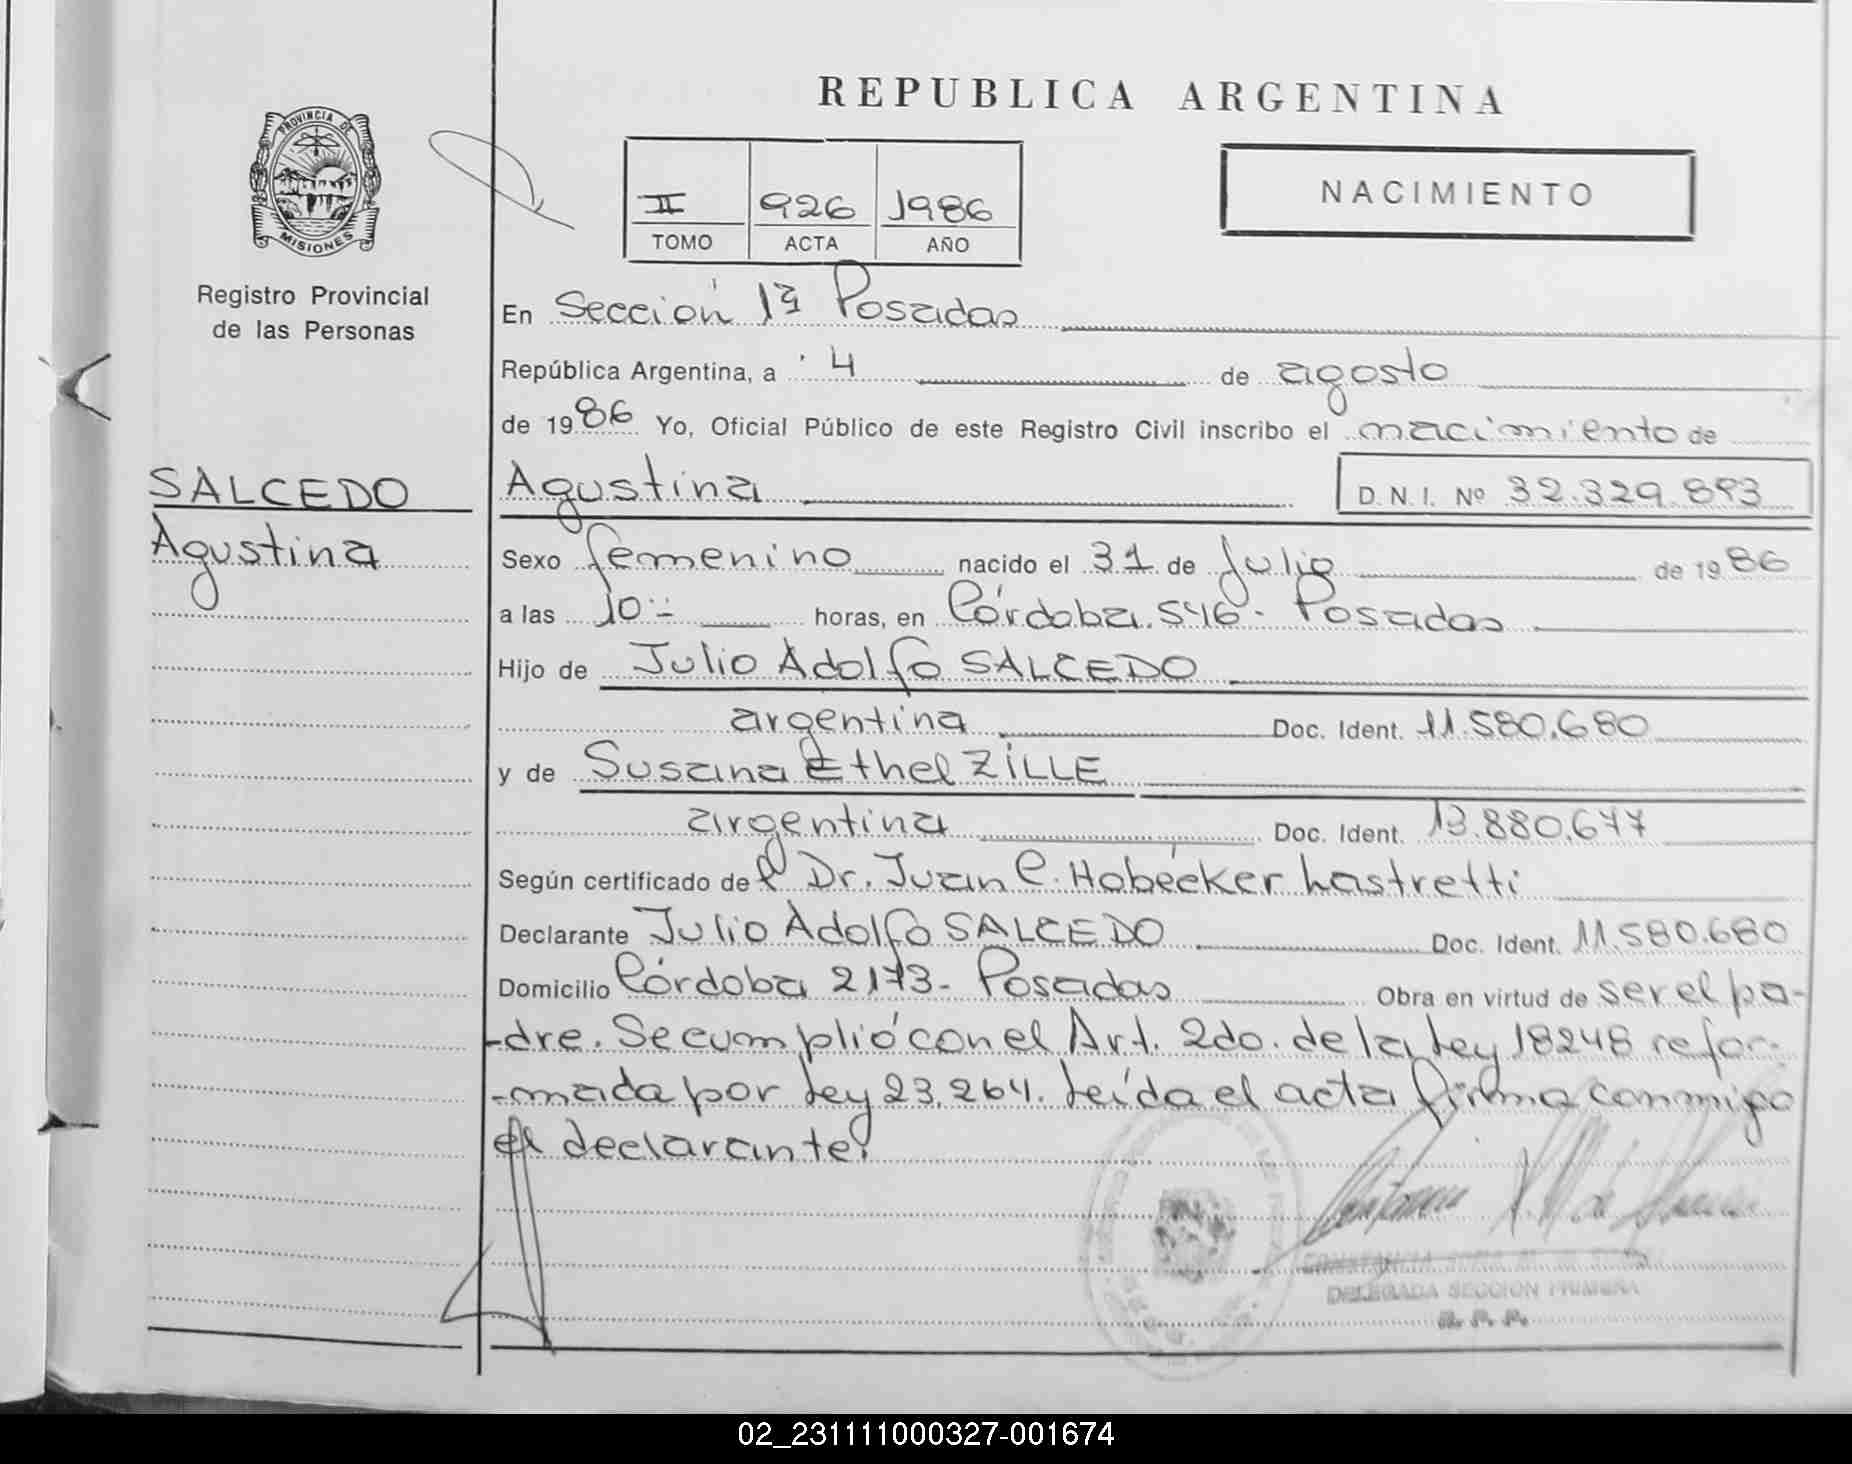 REPUBLICA ARGENTINA
PROVINCIA DE
MISIONES
Registro Provincial
de las Personas
II 926 1986
TOMO ACTA AÑO
NACIMIENTO
En Sección 1ª Posadas
República Argentina, a 4 de agosto
de 1986 Yo, Oficial Público de este Registro Civil inscribo el nacimiento de
SALCEDO
Agustina
Agustina D.N.I. Nº 32.329.893
Sexo femenino nacido el 31 de Julio de 1986
a las 10:- horas, en Córdoba. 546- Posadas
Hijo de Julio Adolfo SALCEDO
argentina Doc. Ident. 11.580.680
y de Susana Ethel ZILLE
argentina Doc. Ident. 13.880.677
Según certificado del Dr. Juan C. Hobecker Lastretti
Declarante Julio Adolfo SALCEDO Doc. Ident. 11.580.680
Domicilio Córdoba 2173- Posadas Obra en virtud de ser el pa-
-dre. Se cumplió con el Art. 2do. de la Ley 18248 refor-
-mada por Ley 23.264. Leída el acta firma conmigo
el declarante.
DELEGADA SECCION PRIMERA
R. P. P.
02_231111000327-001674